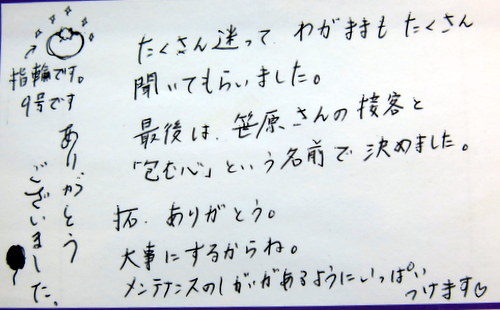 たくさん迷って、わがままもたくさん
聞いてもらいました。
最後は、笹原さんの接客と
「包む心」という名前で決めました。
拓、ありがとう。
大事にするからね。
メンテナンスのしがいがあるようにいっぱい
つけます♡
指輪です。
9号です
ありがとう
ございました。